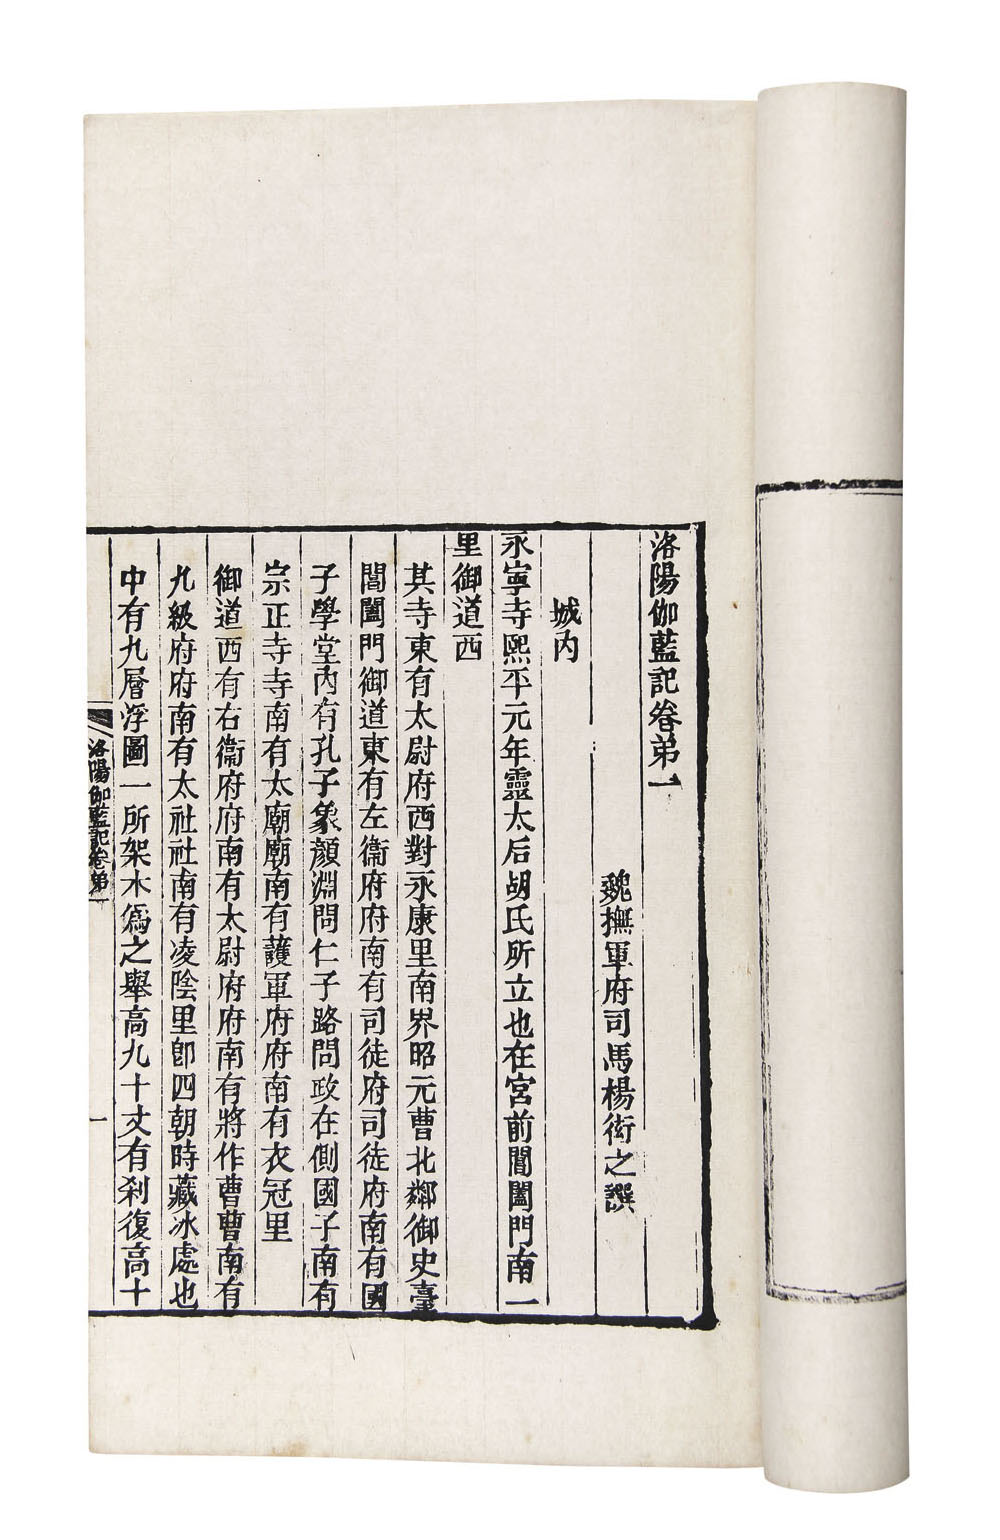 洛陽伽藍記卷弟一
魏撫軍府司馬楊衒之譔
城内
永寧寺熙平元年靈太后胡氏所立也在宮前閶闔門南一
里御道西
其寺東有太尉府西對永康里南界昭元曹北鄰御史臺
閶闔門御道東有左衞府府南有司徒府司徒府南有國
子學堂内有孔子象顏淵問仁子路問政在側國子南有
宗正寺寺南有太廟廟南有護軍府府南有衣冠里
御道西有右衞府府南有太尉府府南有將作曹曹南有
九級府府南有太社社南有凌陰里卽四朝時藏冰處也
中有九層浮圖一所架木爲之舉高九十丈有刹復高十
洛陽伽藍記卷弟一
一